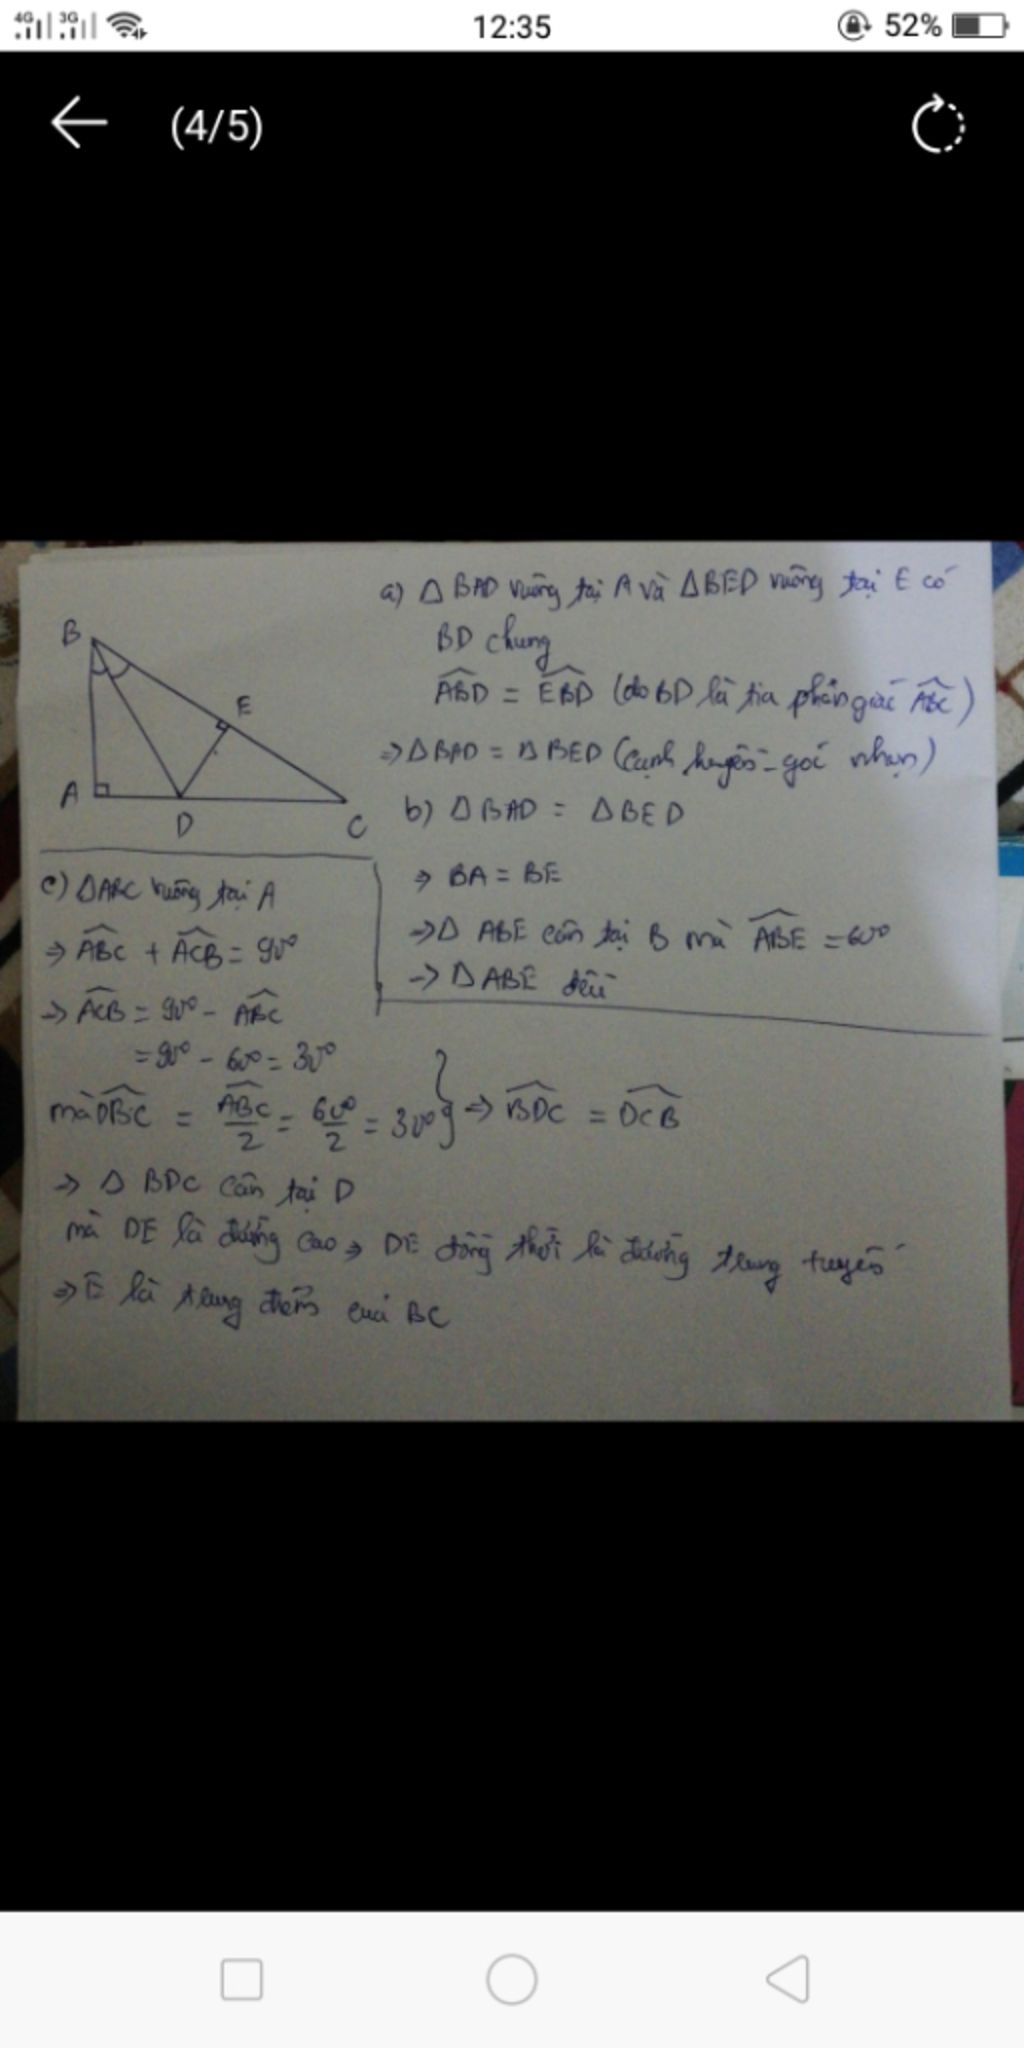 4G 3G 12:35 52%
(4/5)
a) Δ BAD vuông tại A và ΔBED vuông tại E có
BD chung
ABD = EBD (do BD là tia phân giác ABC)
⇒ ΔBAD = ΔBED (cạnh huyền - góc nhọn)
B
E
A
D
C
b) ΔBAD = ΔBED
⇒ BA = BE
→ Δ ABE cân tại B mà ABE = 60°
→ Δ ABE đều
c) ΔABC vuông tại A
⇒ ABC + ACB = 90°
⇒ ACB = 90° - ABC
= 90° - 60° = 30°
mà DBC = ABC/2 = 60°/2 = 30° } ⇒ BDC = DCB
⇒ Δ BDC cân tại D
mà DE là đường cao ⇒ DE đồng thời là đường trung tuyến
⇒ E là trung điểm của BC